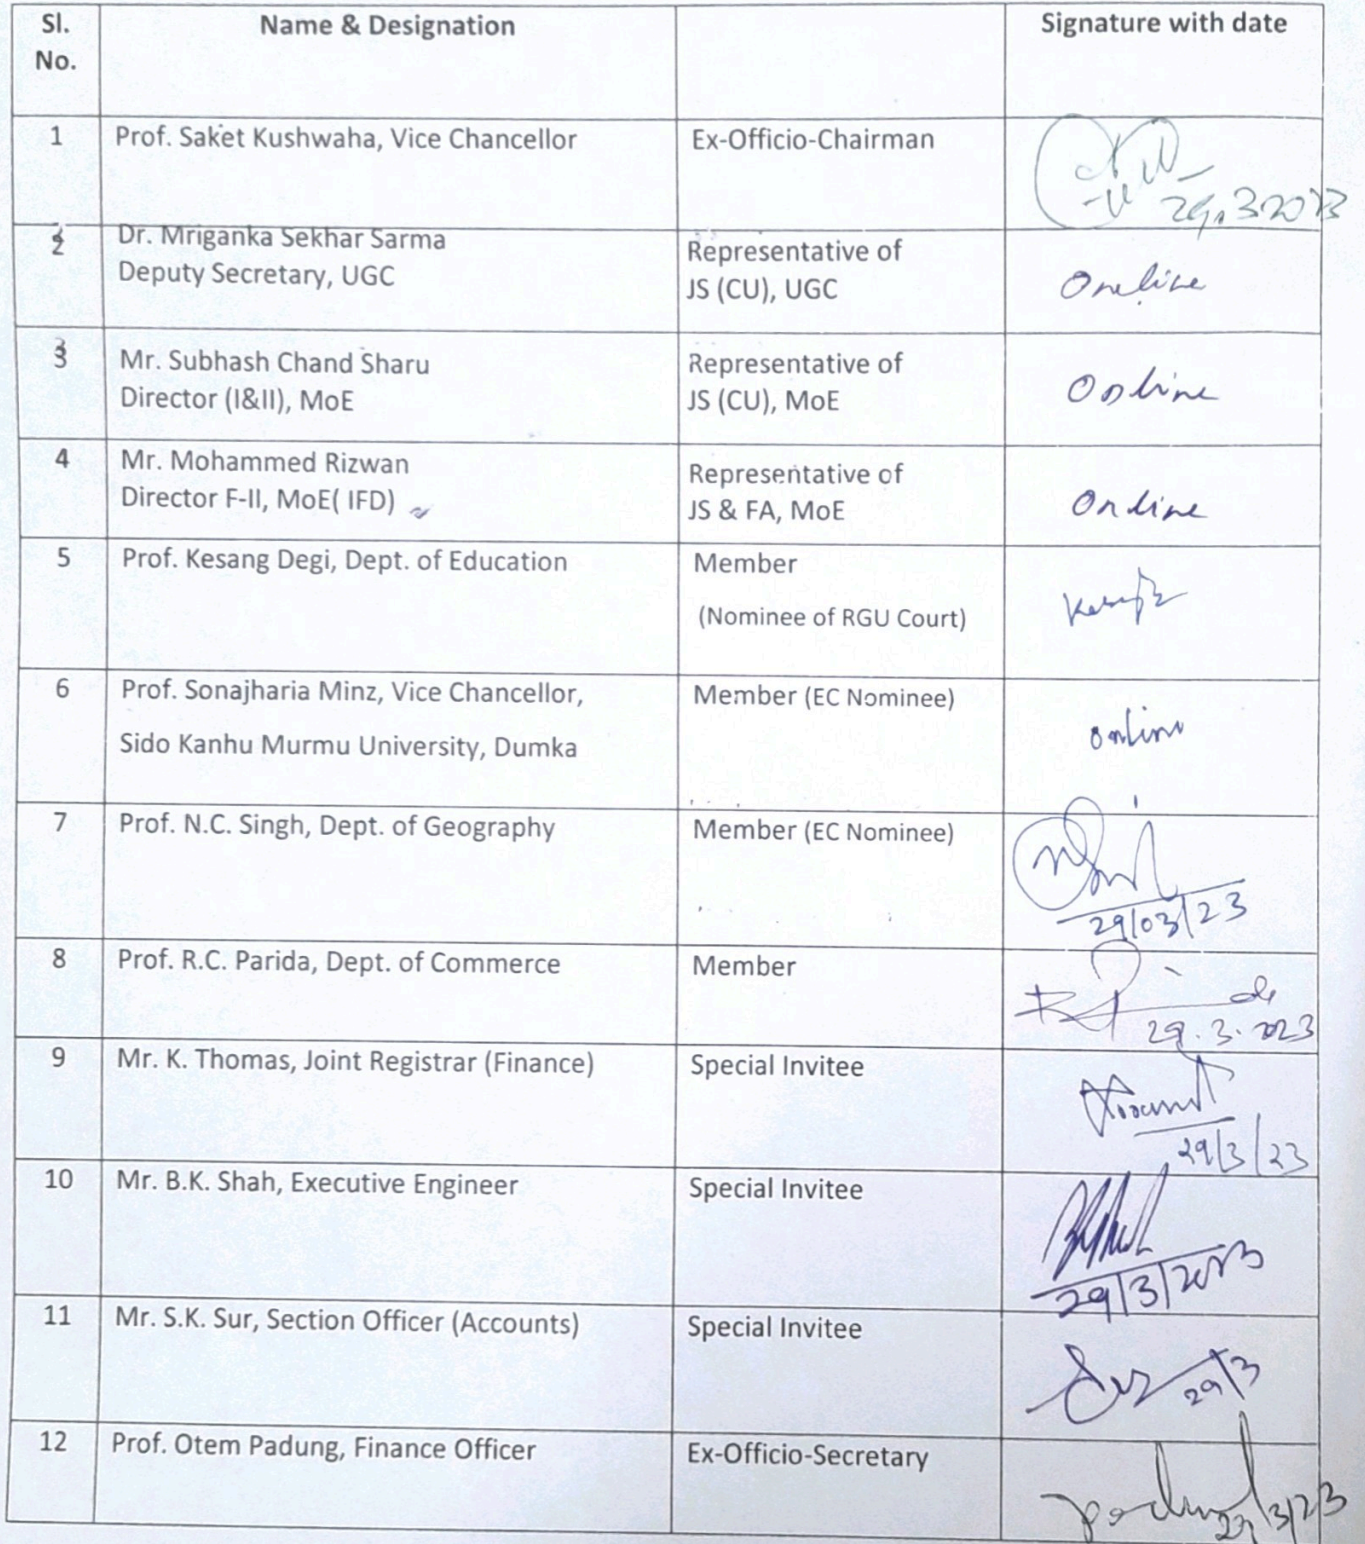 Sl. No.
Name & Designation
Signature with date
1
Prof. Saket Kushwaha, Vice Chancellor
Ex-Officio-Chairman
29.3.2023
2
Dr. Mriganka Sekhar Sarma
Deputy Secretary, UGC
Representative of
JS (CU), UGC
Online
3
Mr. Subhash Chand Sharu
Director (I&II), MoE
Representative of
JS (CU), MoE
Online
4
Mr. Mohammed Rizwan
Director F-II, MoE( IFD)
Representative of
JS & FA, MoE
Online
5
Prof. Kesang Degi, Dept. of Education
Member
(Nominee of RGU Court)
6
Prof. Sonajharia Minz, Vice Chancellor,
Sido Kanhu Murmu University, Dumka
Member (EC Nominee)
online
7
Prof. N.C. Singh, Dept. of Geography
Member (EC Nominee)
29/03/23
8
Prof. R.C. Parida, Dept. of Commerce
Member
29.3.2023
9
Mr. K. Thomas, Joint Registrar (Finance)
Special Invitee
29/3/23
10
Mr. B.K. Shah, Executive Engineer
Special Invitee
29/3/2023
11
Mr. S.K. Sur, Section Officer (Accounts)
Special Invitee
29/3
12
Prof. Otem Padung, Finance Officer
Ex-Officio-Secretary
29/3/23